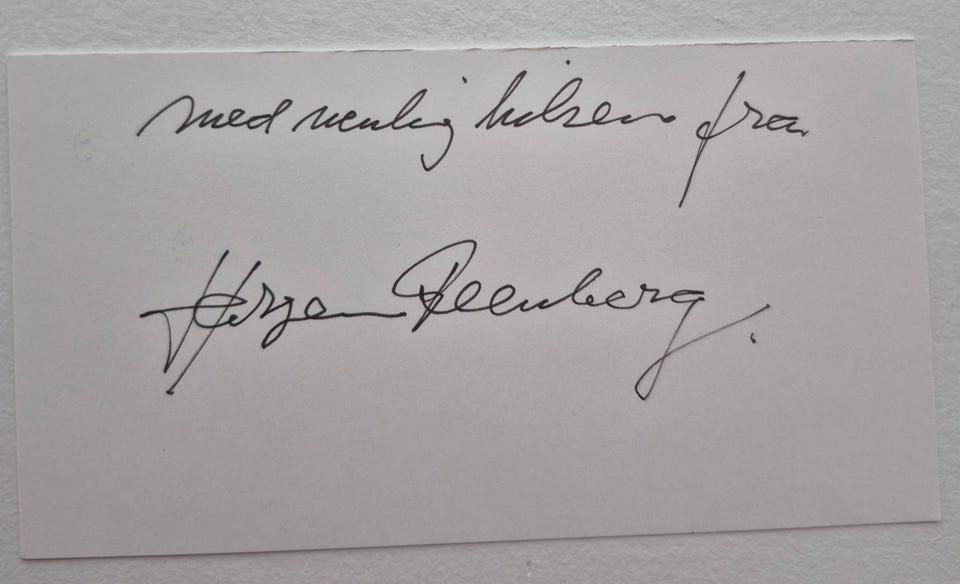 med venlig hilsen fra
Jørgen Reenberg.